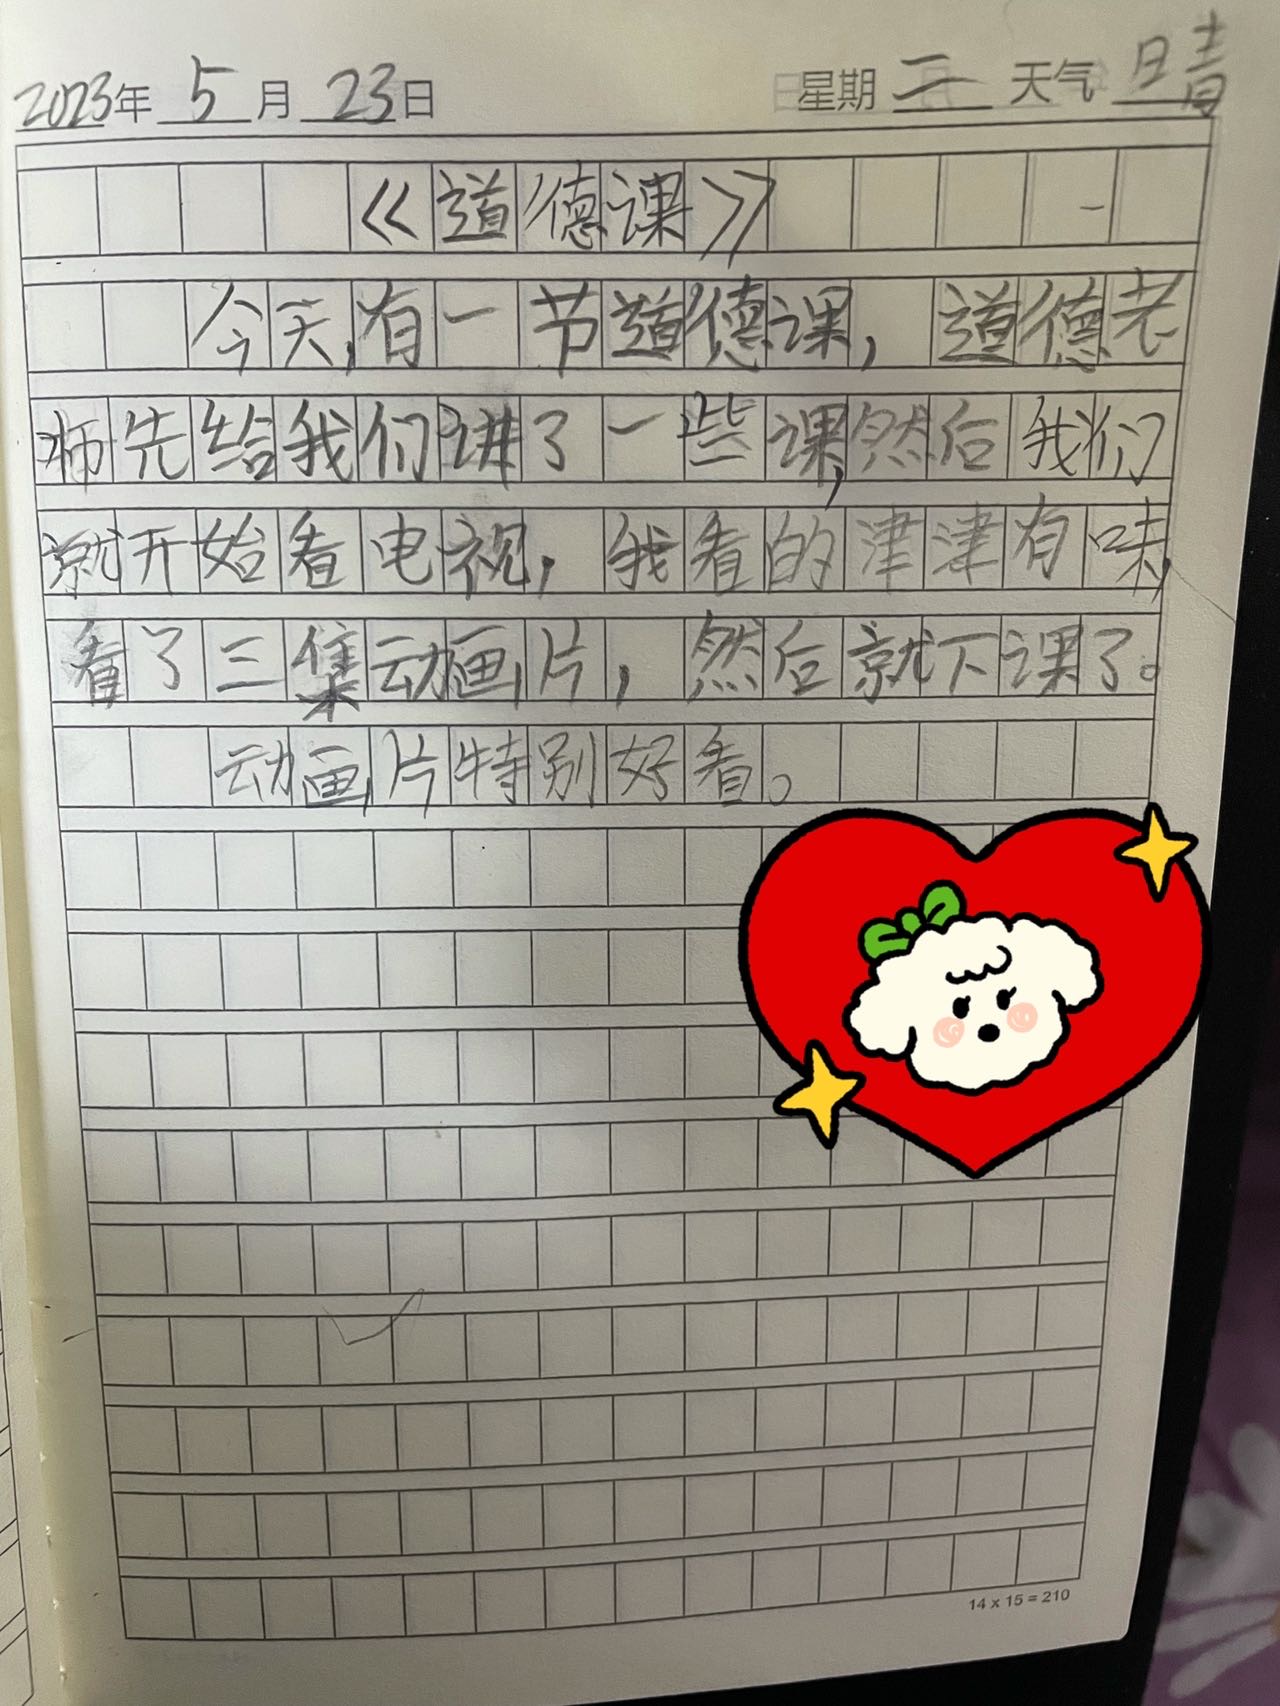 2023年 5 月 23 日 星期 二 天气 晴
《道德课》
今天,有一节道德课,道德老
师先给我们讲了一些课,然后我们
就开始看电视,我看的津津有味,
看了三集动画片,然后就下课了。
动画片特别好看。
14 x 15 = 210